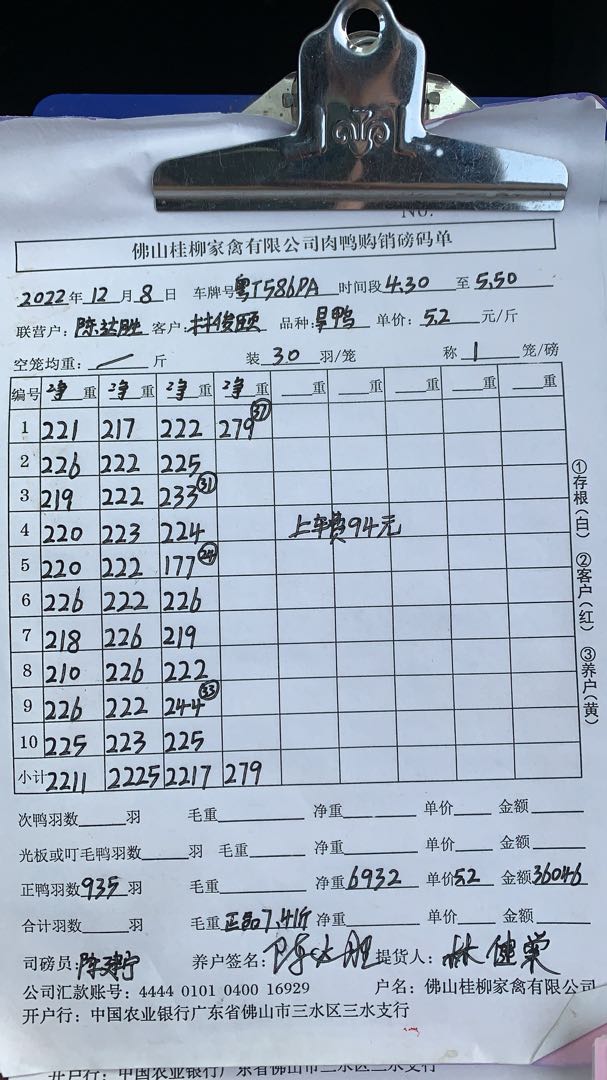 No.
佛山桂柳家禽有限公司肉鸭购销磅码单
2022年12月8日 车牌号粤T586PA 时间段4.30至5.50
联营户:陈达胜 客户:林俊颐 品种:旱鸭 单价:5.2元/斤
空笼均重:一斤 装30羽/笼 称1笼/磅
编号 净重 净重 净重 净重 重 重 重 重 重
1 221 217 222 279 37
2 226 222 225
3 219 222 233 31
4 220 223 224 上车费94元
5 220 222 177 24
6 226 222 226
7 218 226 219
8 210 226 222
9 226 222 244 33
10 225 223 225
小计 2211 2225 2217 279
①存根(白) ②客户(红) ③养户(黄)
次鸭羽数 羽 毛重 净重 单价 金额
光板或叮毛鸭羽数 羽 毛重 净重 单价 金额
正鸭羽数935羽 毛重 净重6932 单价5.2 金额36046
合计羽数 羽 毛重正品7.41斤 净重 单价 金额
司磅员:陈建宁 养户签名:陈达胜 提货人:林健棠
公司汇款账号:4444 0101 0400 16929 户名:佛山桂柳家禽有限公司
开户行:中国农业银行广东省佛山市三水区三水支行
开户行:中国农业银行广东省佛山市三水区三水支行